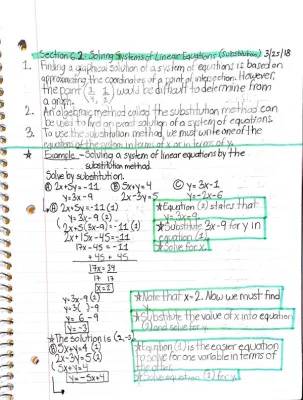 Section 6.2 - Solving Systems of Linear Equations (Substitution) 3/25/18
1. Finding a graphical solution of a system of equations is based on
approximating the coordinates of a point of intersection. However,
the point would be difficult to determine from
a graph.
2. An algebraic method called the substitution method can
be used to find an exact solution of a system of equations.
3. To use the substitution method, we must write one of the
equations of the system in terms of x or in terms of y.
★ Example - Solving a system of linear equations by the
substitution method.
Solve by substitution.
Ⓐ 2x+5y=-11 Ⓑ 5x+y=4 Ⓒ y=3x-1
y=3x-9 2x-3y=5 y=-2x-6
2x+5y=-11 (1)
y=3x-9 (2)
2x+5(3x-9)=-11 (1)
2x+15x-45=-11
17x-45=-11
+45 +45
17x=34
17 17
x=2
★Equation (2) states that
y=3x-9
★Substitute 3x-9 for y in
equation (1)
★Solve for x.
y=3x-9 (2)
y=3( )-9
y=6-9
y=-3
★Note that x=2. Now we must find
y.
★Substitute the value of x into equation
(2) and solve for y.
★The solution is (2,-3)
Ⓑ 5x+y=4 (1)
2x-3y=5 (2)
5x+y=4 (1)
y=-5x+4
★Equation (1) is the easier equation
to solve for one variable in terms of
the other.
★Solve equation (1) for y.